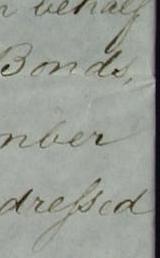 n behalf
Bonds,
mber
dressed